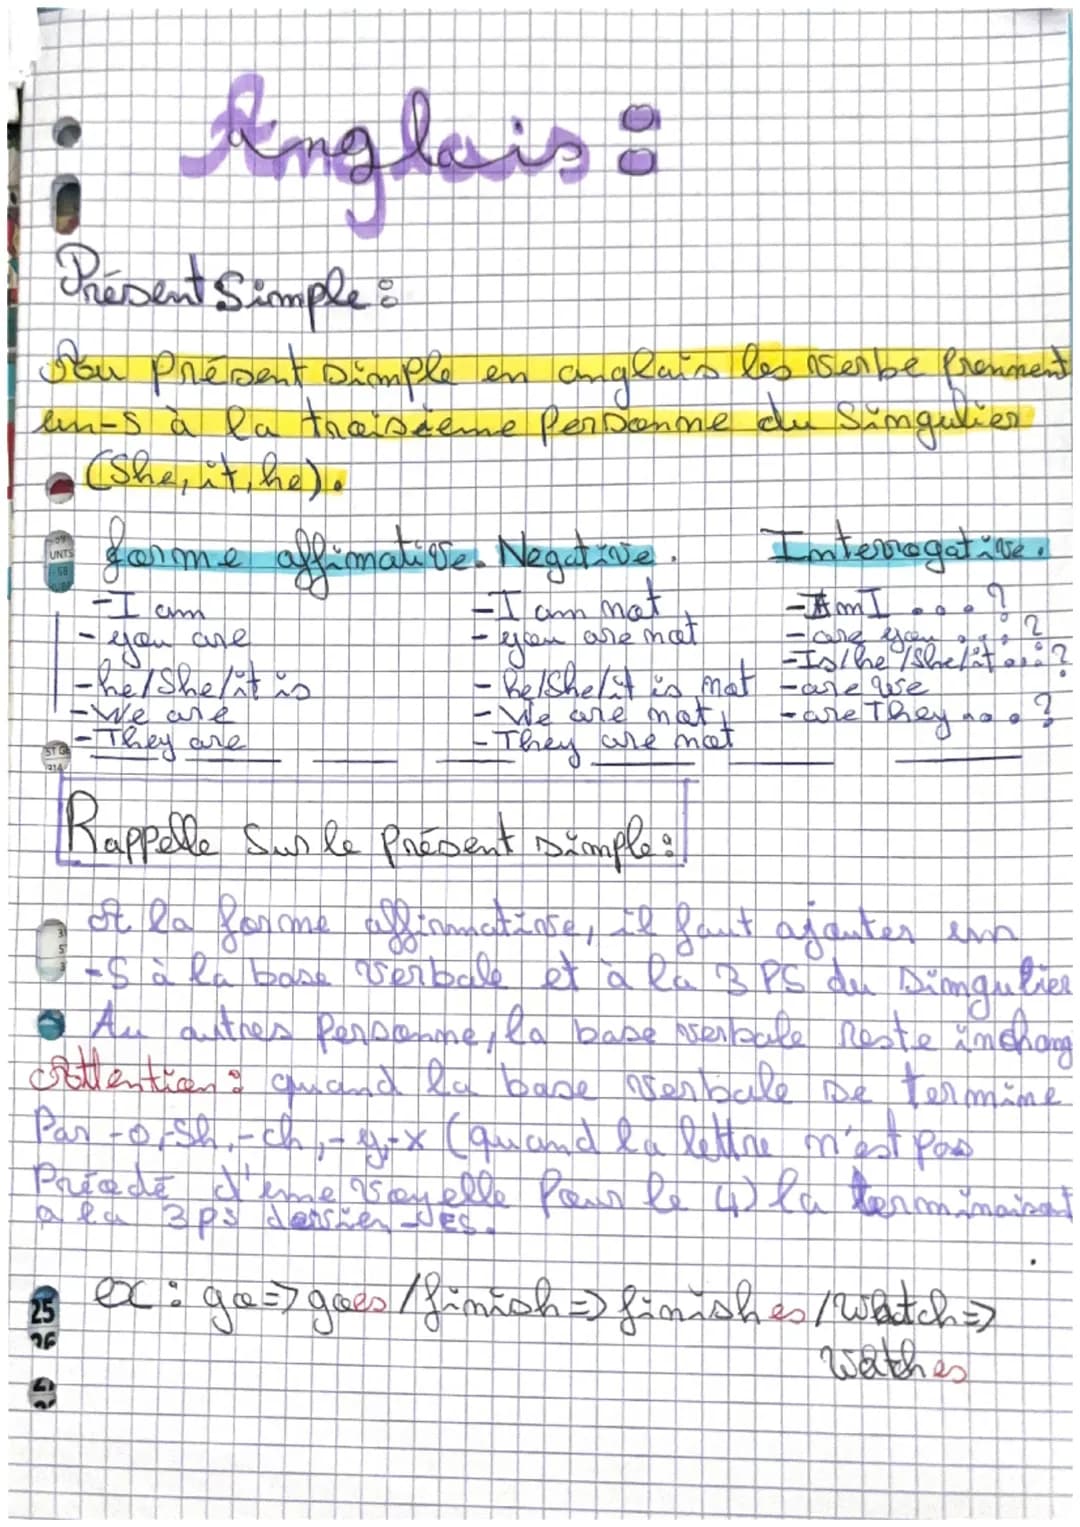 Anglais :
Présent Simple :
Au Présent simple en anglais les verbe prennent
un -s à la troisième Personne du Singulier
(She, it, he).
forme affimative. Negative. Interrogative.
- I am - I am not - Am I ...?
- you are - you are not - are you ...?
- he/She/it is - he/she/it is not - Is/he/She/it ...?
- We are - We are not - are we
- They are - They are not - are They ...?
Rappelle Sur le Présent simple :
A la forme affirmative, il faut ajouter un
-S à la base verbale et à la 3 PS du Singulier
Au autres Personne, la base verbale reste inchang
Attention : quand la base verbale se termine
Par -o, -sh, -ch, -y, -x (quand la lettre n'est pas
Précedé d'une voyelle Pour le y) la terminaison
a la 3ps devien -ES.
ex : go => goes / finish => finishes / Watch =>
Watches
25
26
UNTS